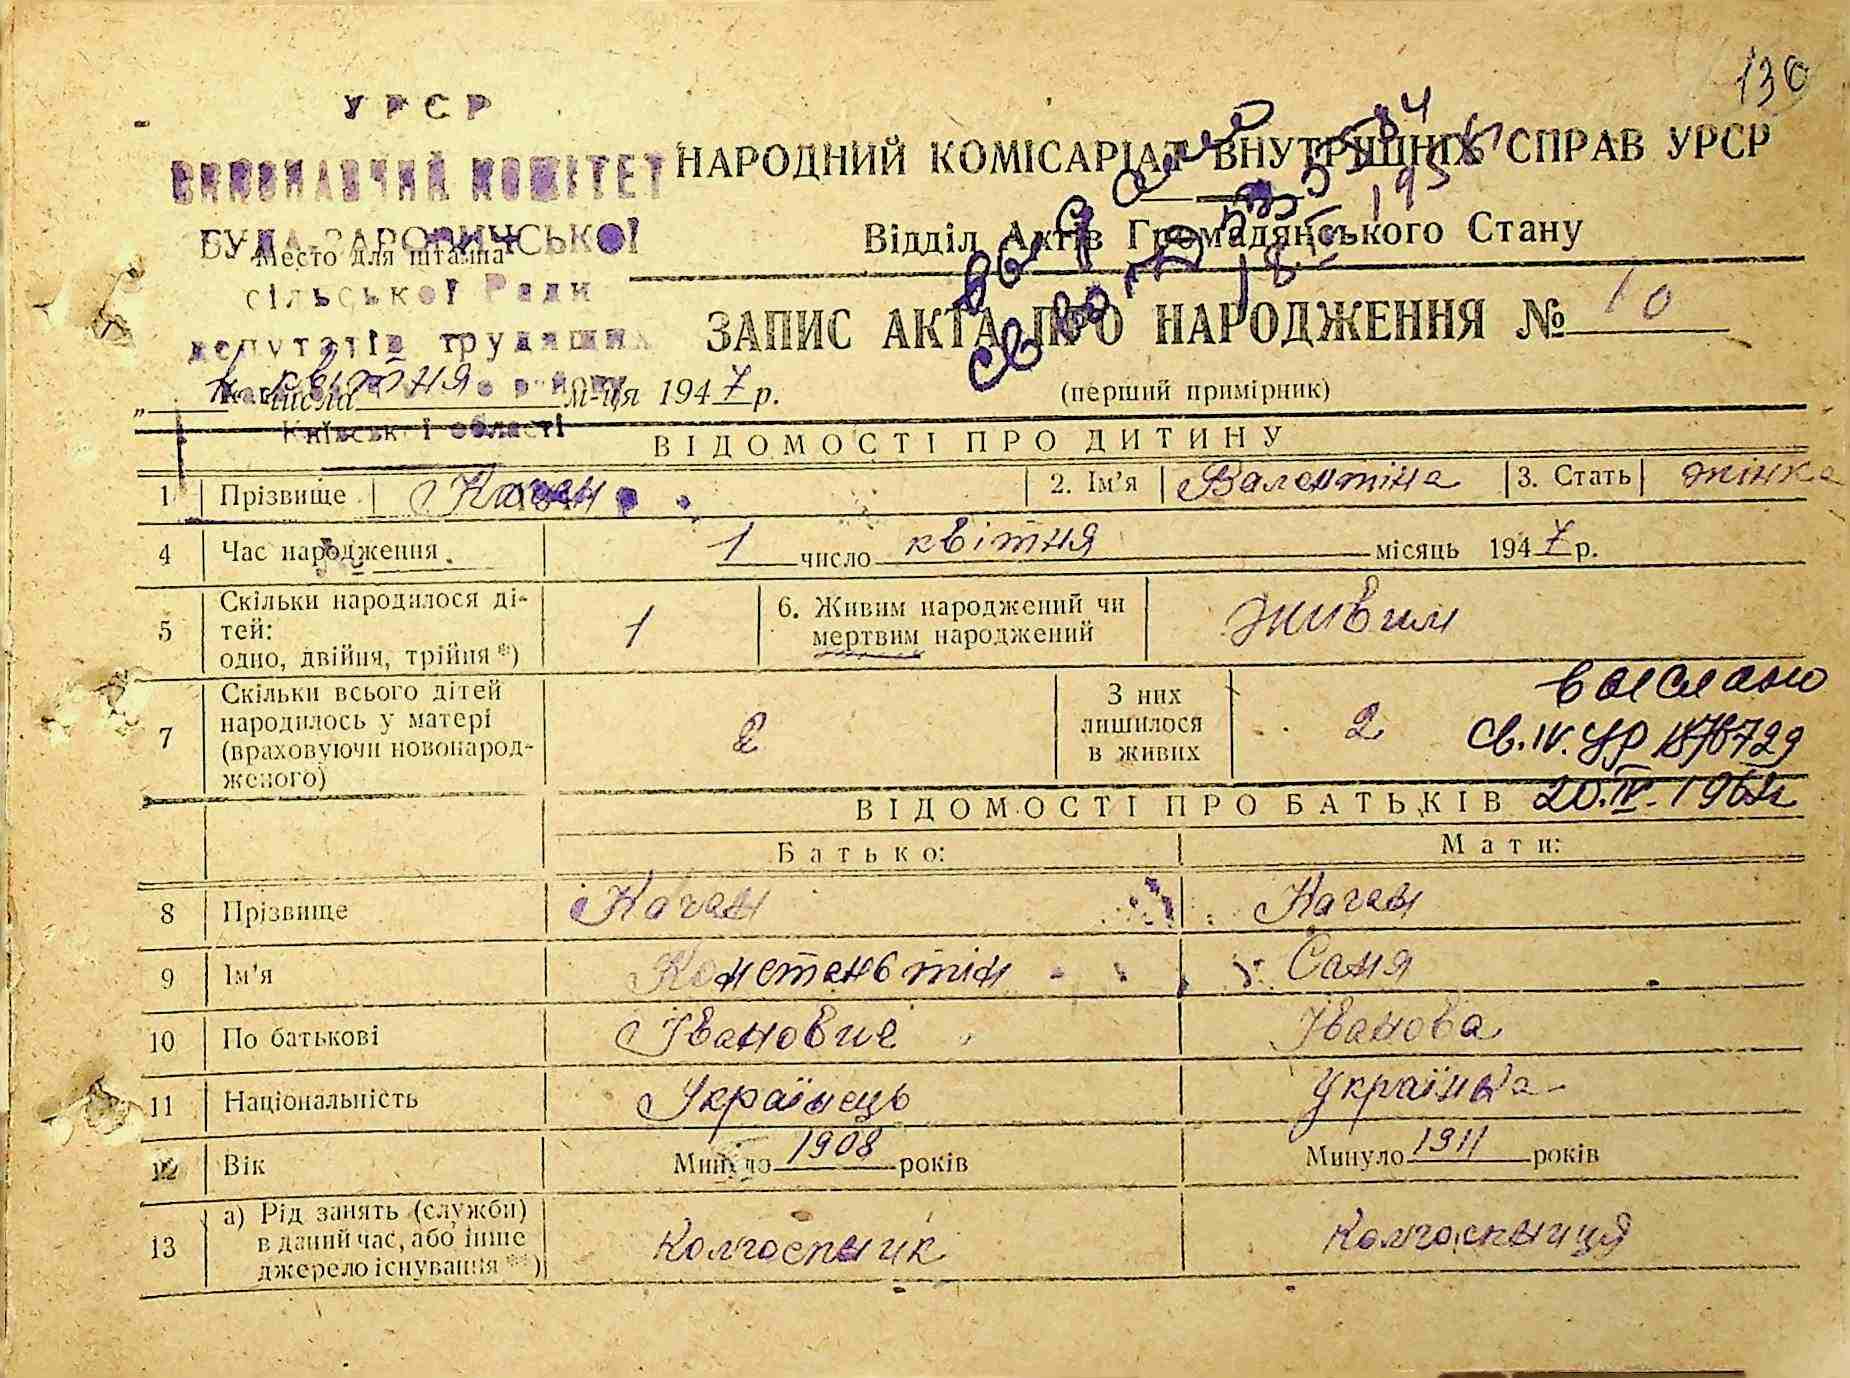 130
УРСР
ВИКОНАВЧИЙ КОМІТЕТ
БУДА-ЗАРОВИЧСЬКОЇ
Место для штампа
сільської Ради
депутатів трудящих
Київської області
НАРОДНИЙ КОМІСАРІАТ ВНУТРІШНІХ СПРАВ УРСР
Відділ Актів Громадянського Стану
ЗАПИС АКТА ПРО НАРОДЖЕННЯ № 10
(перший примірник)
числа квітня м-ця 1947 р.
ВІДОМОСТІ ПРО ДИТИНУ
1 Прізвище Качан 2. Ім'я Валентіна 3. Стать жінка
4 Час народження 1 число квітня місяць 1947 р.
5 Скільки народилося ді-
тей:
одно, двійня, трійня *) 1
6. Живим народжений чи
мертвим народжений живим
7 Скільки всього дітей
народилось у матері
(враховуючи новонарод-
женого) 2
З них
лишилося
в живих 2
выслано
св. IV. УР
20.IV.
ВІДОМОСТІ ПРО БАТЬКІВ
Батько: Мати:
8 Прізвище Качан Качан
9 Ім'я Констеньтін Саня
10 По батькові Іванович Іванова
11 Національність Українець Україньа
12 Вік Минуло 1908 років Минуло 1911 років
13 а) Рід занять (служби)
в даний час, або інше
джерело існування **) Колгоспник Колгоспниця